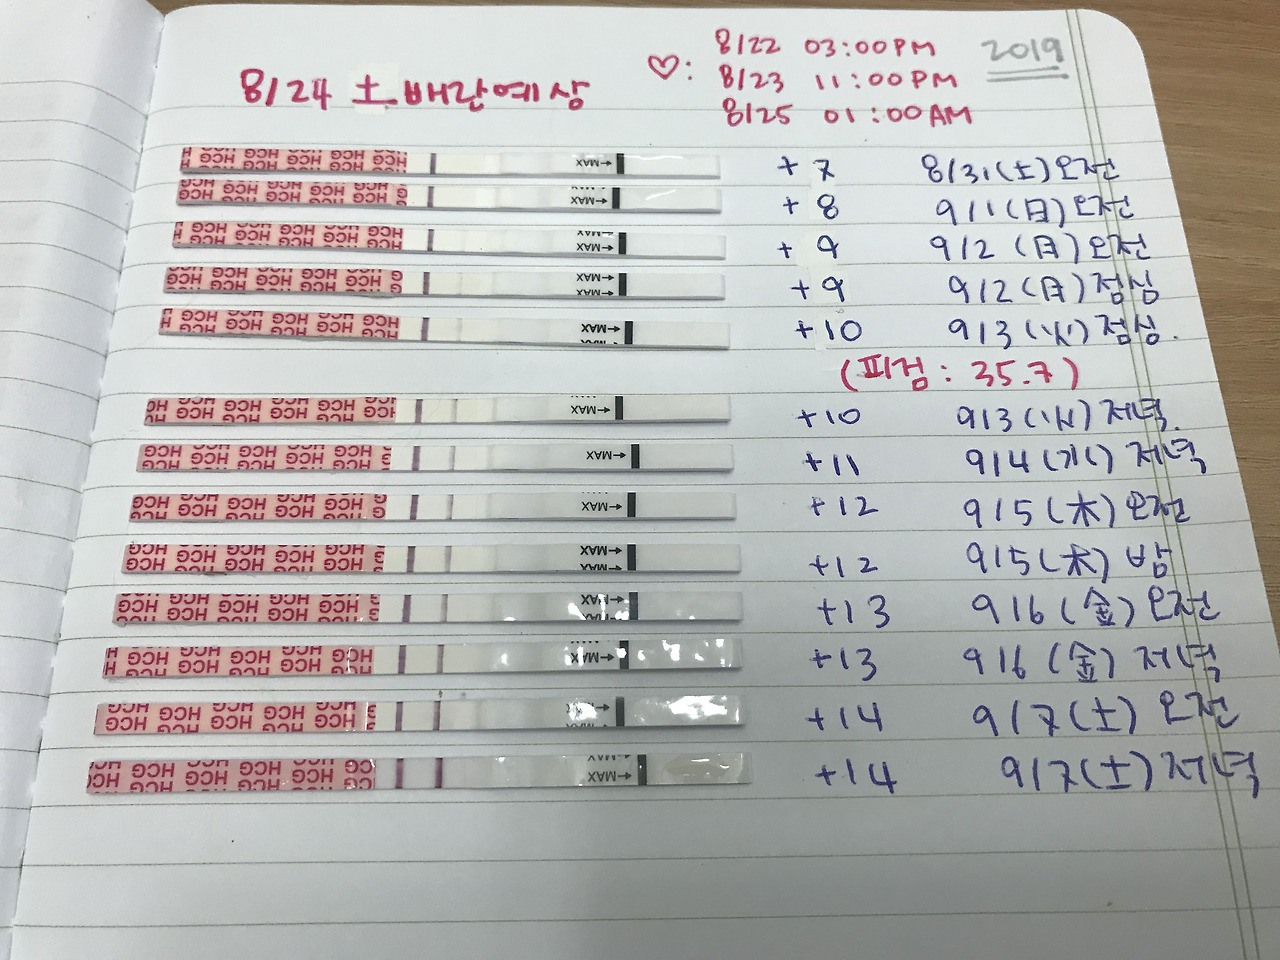 2019
♡: 8/22 03:00PM
8/23 11:00PM
8/25 01:00AM
8/24 土 배란예상
HCG HCG HCG HCG MAX + 7 8/31(土) 오전
HCG HCG HCG HCG MAX + 8 9/1(日) 오전
HCG HCG HCG HCG MAX + 9 9/2 (月) 오전
HCG HCG HCG HCG MAX + 9 9/2 (月) 점심
HCG HCG HCG HCG MAX + 10 9/3 (火) 점심.
(피검 : 35.7)
HCG HCG HCG HCG MAX +10 9/3 (火) 저녁.
HCG HCG HCG HCG MAX +11 9/4 (水) 저녁
HCG HCG HCG HCG MAX +12 9/5 (木) 오전
HCG HCG HCG HCG MAX +12 9/5 (木) 밤
HCG HCG HCG HCG MAX +13 9/6 (金) 오전
HCG HCG HCG HCG MAX +13 9/6 (金) 저녁
HCG HCG HCG HCG +14 9/7 (土) 오전
HCG HCG HCG HCG MAX +14 9/7 (土) 저녁